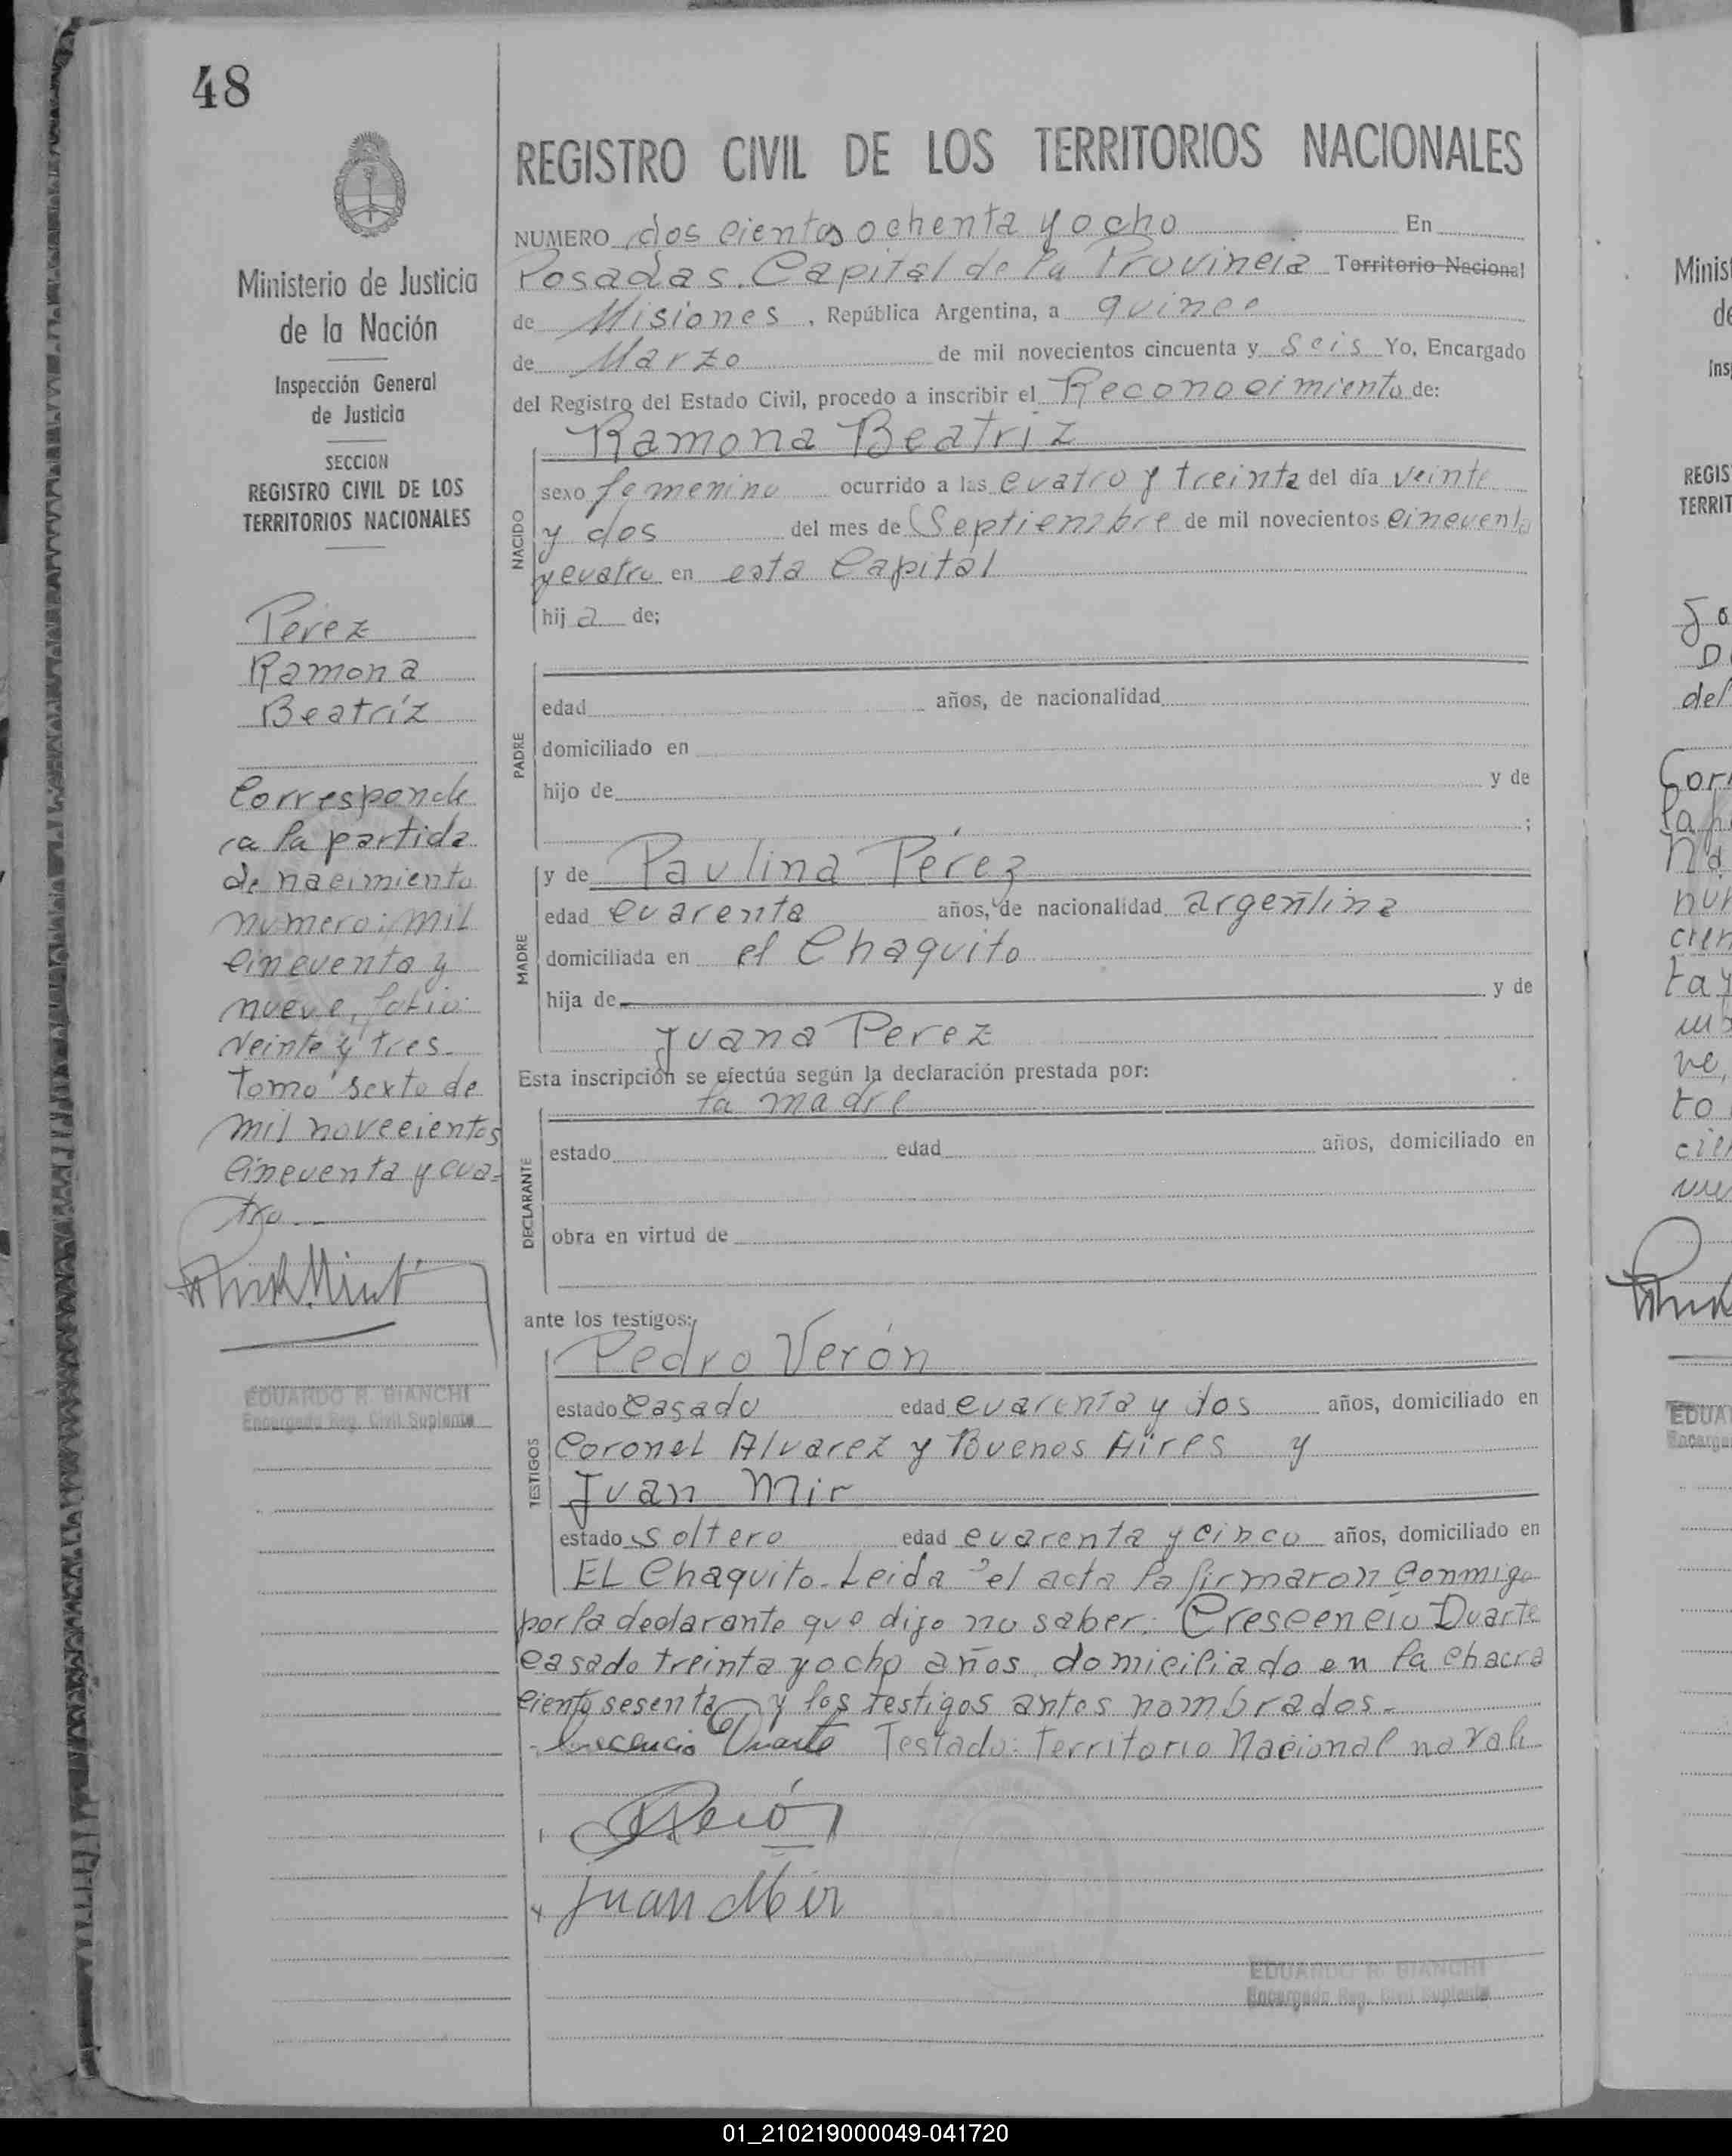 48
REGISTRO CIVIL DE LOS TERRITORIOS NACIONALES
Ministerio de Justicia
de la Nación
Inspección General
de Justicia
SECCION
REGISTRO CIVIL DE LOS
TERRITORIOS NACIONALES
Pérez
Ramona
Beatríz
Corresponde
a la partida
de nacimiento
numero: mil
cincuenta y
nueve, folio:
veinte y tres.
Tomo sexto de
mil novecientos
cincuenta y cua-
tro.
EDUARDO R. BIANCHI
Encargado Reg. Civil Suplente
NUMERO dos cientos ochenta y ocho En
Posadas. Capital de la Provincia Territorio Nacional
de Misiones, República Argentina, a quince
de Marzo de mil novecientos cincuenta y Seis Yo, Encargado
del Registro del Estado Civil, procedo a inscribir el Reconocimiento de:
Ramona Beatriz
NACIDO
sexo femenino ocurrido a las cuatro y treinta del día veinte
y dos del mes de Septiembre de mil novecientos cincuenta
y cuatro en esta Capital
hij a de;
PADRE
edad años, de nacionalidad
domiciliado en
hijo de y de
;
MADRE
y de Paulina Pérez
edad cuarenta años, de nacionalidad argentina
domiciliada en el Chaquito
hija de y de
Juana Perez
Esta inscripción se efectúa según la declaración prestada por:
la madre
DECLARANTE
estado edad años, domiciliado en
obra en virtud de
ante los testigos:
Pedro Verón
TESTIGOS
estado Casado edad cuarenta y dos años, domiciliado en
Coronel Alvarez y Buenos Aires y
Juan Mir
estado soltero edad cuarenta y cinco años, domiciliado en
EL Chaquito. Leida el acta la firmaron Conmigo
por la declarante que dijo no saber: Crescencio Duarte
casado treinta y ocho años domiciliado en la chacra
ciento sesenta y los testigos antes nombrados.
Crecencio Duarte Testado: Territorio Nacional no vale
Verón
Juan Mir
EDUARDO R. BIANCHI
Encargado Reg. Civil Suplente
Minis
de
Ins
REGIS
TERRIT
del
Corr
EDUA
Encarga
01_210219000049-041720